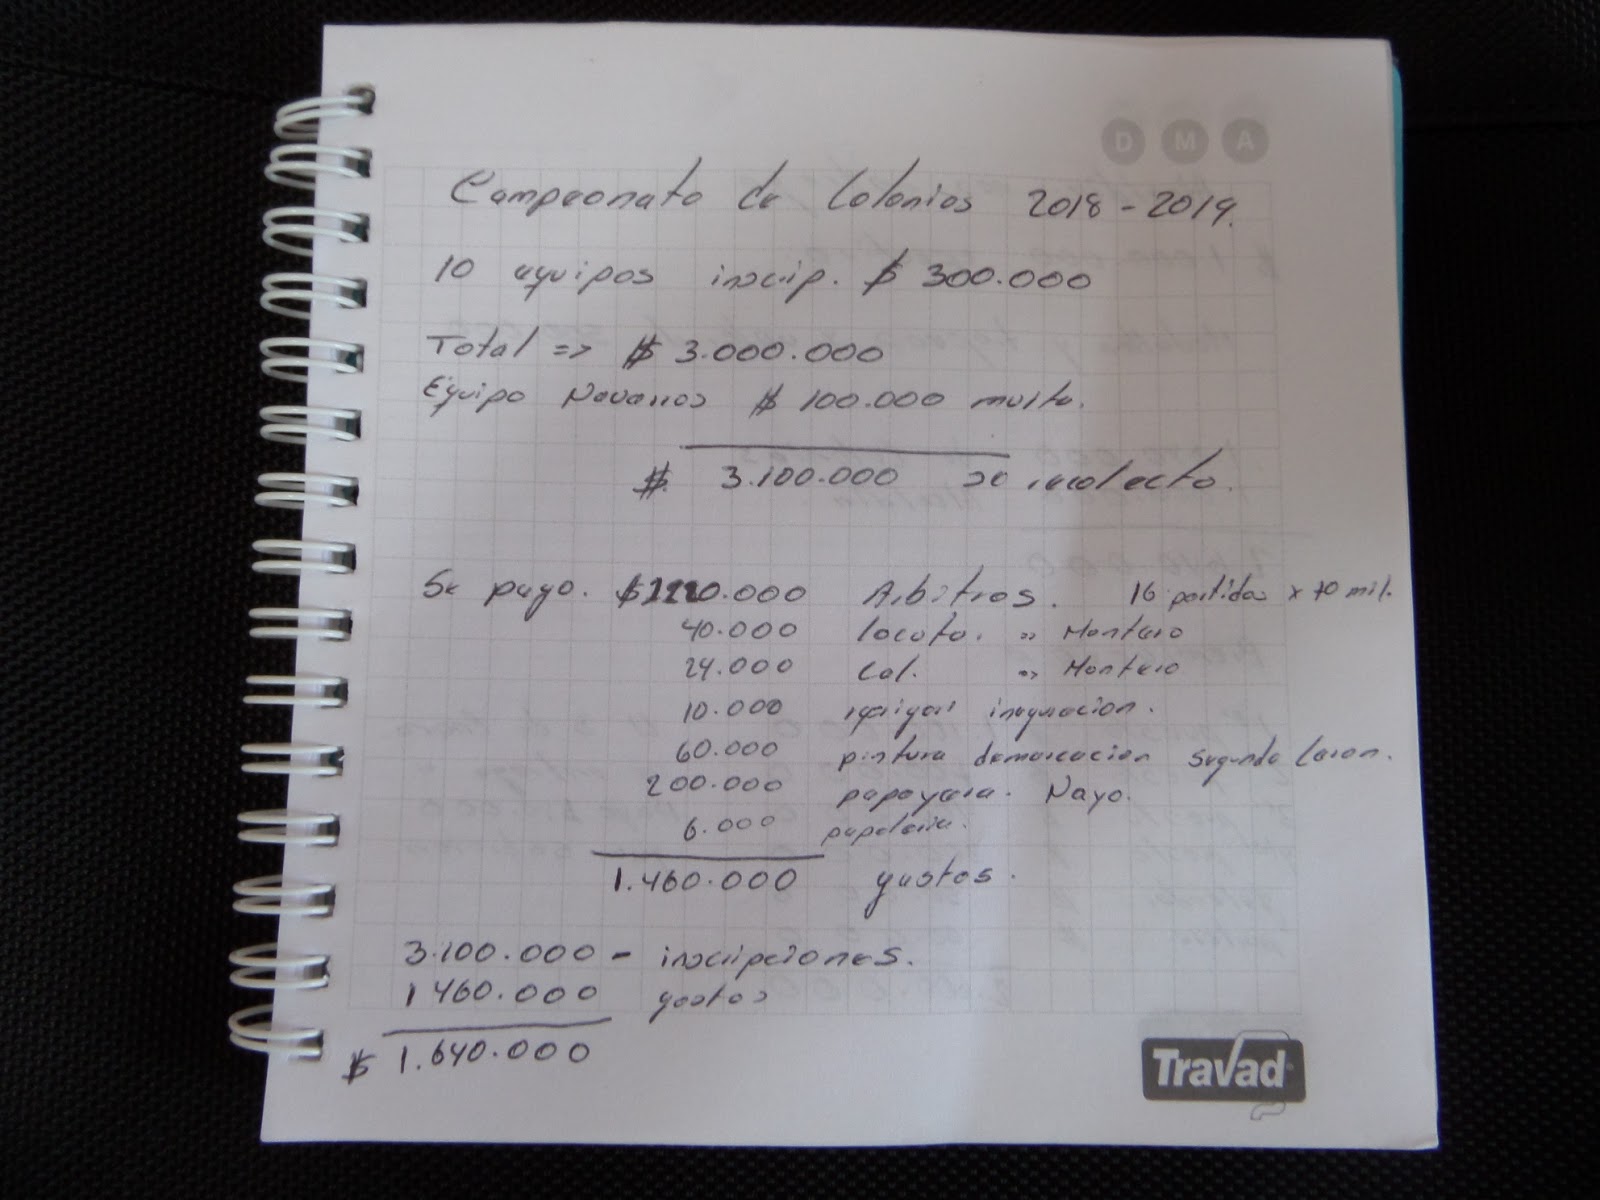 D M A
Campeonato de Colonias 2018 - 2019.
10 equipos inscrip. $ 300.000
Total => $ 3.000.000
Equipo Navarros $ 100.000 multa.
$ 3.100.000 se recolecto.
Se pago. $1120.000 Arbitros. 16 partidos x 70 mil.
40.000 locoto. => Montero
24.000 Cal. => Montero
10.000 inaguracion.
60.000 pintura demarcacion Segundo Laron.
200.000 papayera. Nayo.
6.000 papeleria.
1.460.000 gastos.
3.100.000 - inscripciones.
1460.000 gastos
$ 1.640.000
Travad